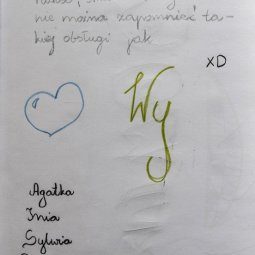 nie można zapomnieć ta-
kiej obsługi jak
xD
Wy
Agatka
Inia
Sylwia